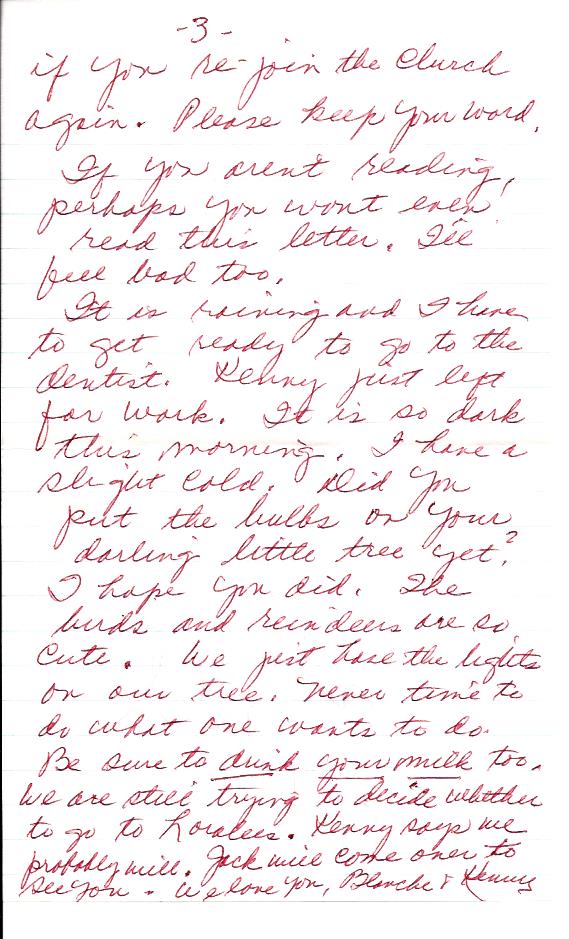 -3-
if you re-join the Church
again. Please keep your word.
If you arent reading,
perhaps you wont even
read this letter. I'll
feel bad too.
It is raining and I have
to get ready to go to the
dentist. Kenny just left
for work. It is so dark
this morning. I have a
slight cold. Did you
put the bulbs on your
darling little tree yet?
I hope you did. The
birds and reindeers are so
cute. We just have the lights
on our tree. Never time to
do what one wants to do.
Be sure to drink your milk too.
We are still trying to decide whether
to go to Loralees. Kenny says we
probably will. Jack will come over to
see you - We love you, Blanche & Kenny